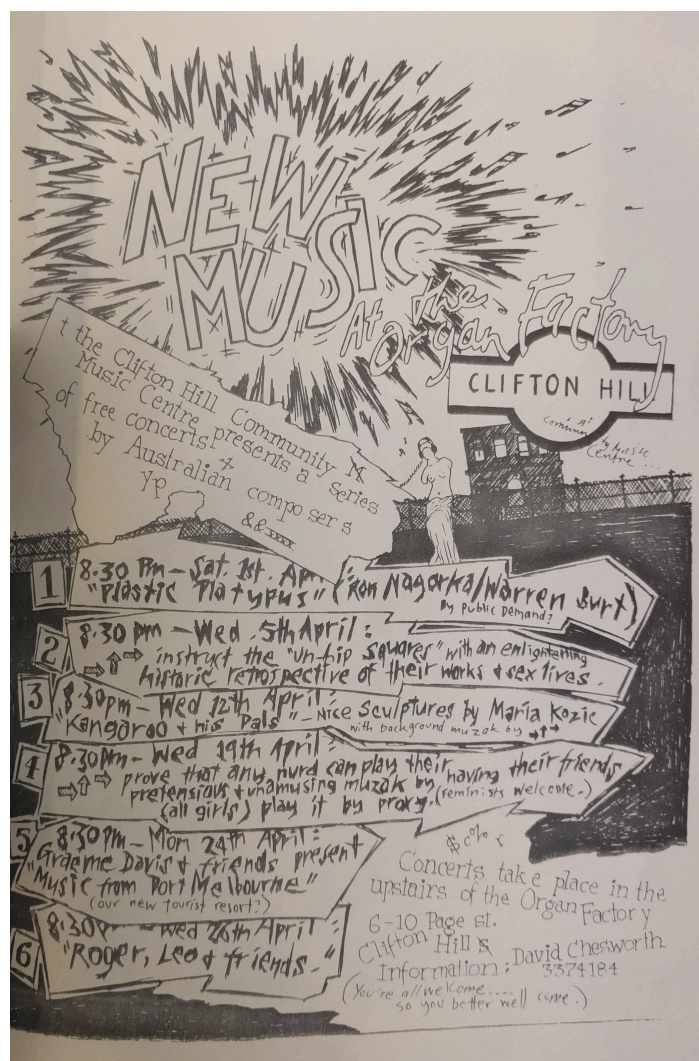 NEW
MUSIC
At the
Organ Factory
CLIFTON HILL
t the Clifton Hill Community M
Music Centre presents a series
of free concerts
by Australian composers
yp
&&
1
8.30 pm – Sat. 1st. Apr
"Plastic Platypus" (Ron Nagorka/Warren Burt)
By public Demand?
2
8.30 pm – Wed. 5th April:
→ ↑ → instruct the "un-hip squares" with an enlightening
historic retrospective of their works & sex lives.
3
8.30pm – Wed 12th April:
"Kangaroo & his Pals" – Nice Sculptures by Maria Kozic
with background muzak by → ↑ →
4
8.30pm – Wed 19th April:
→ ↑ → prove that any nurd can play their
pretensious & unamusing muzak by having their friends
(all girls) play it by proxy. (feminists welcome.)
5
8.30pm – Mon 24th April:
Graeme Davis & friends present
"Music from Port Melbourne"
(our new tourist resort?)
6
8.30p – Wed 26th April
"Roger, Leo & friends."
Concerts take place in the
upstairs of the Organ Factory
6-10 Page st.
Clifton Hill
Information: David Chesworth
3374184
(You're all welcome.....
so you better well come.)